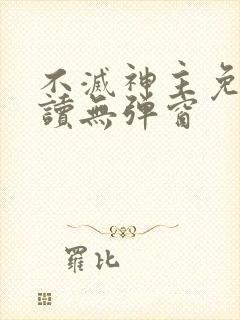 不滅神主免
讀無彈窗
羅比